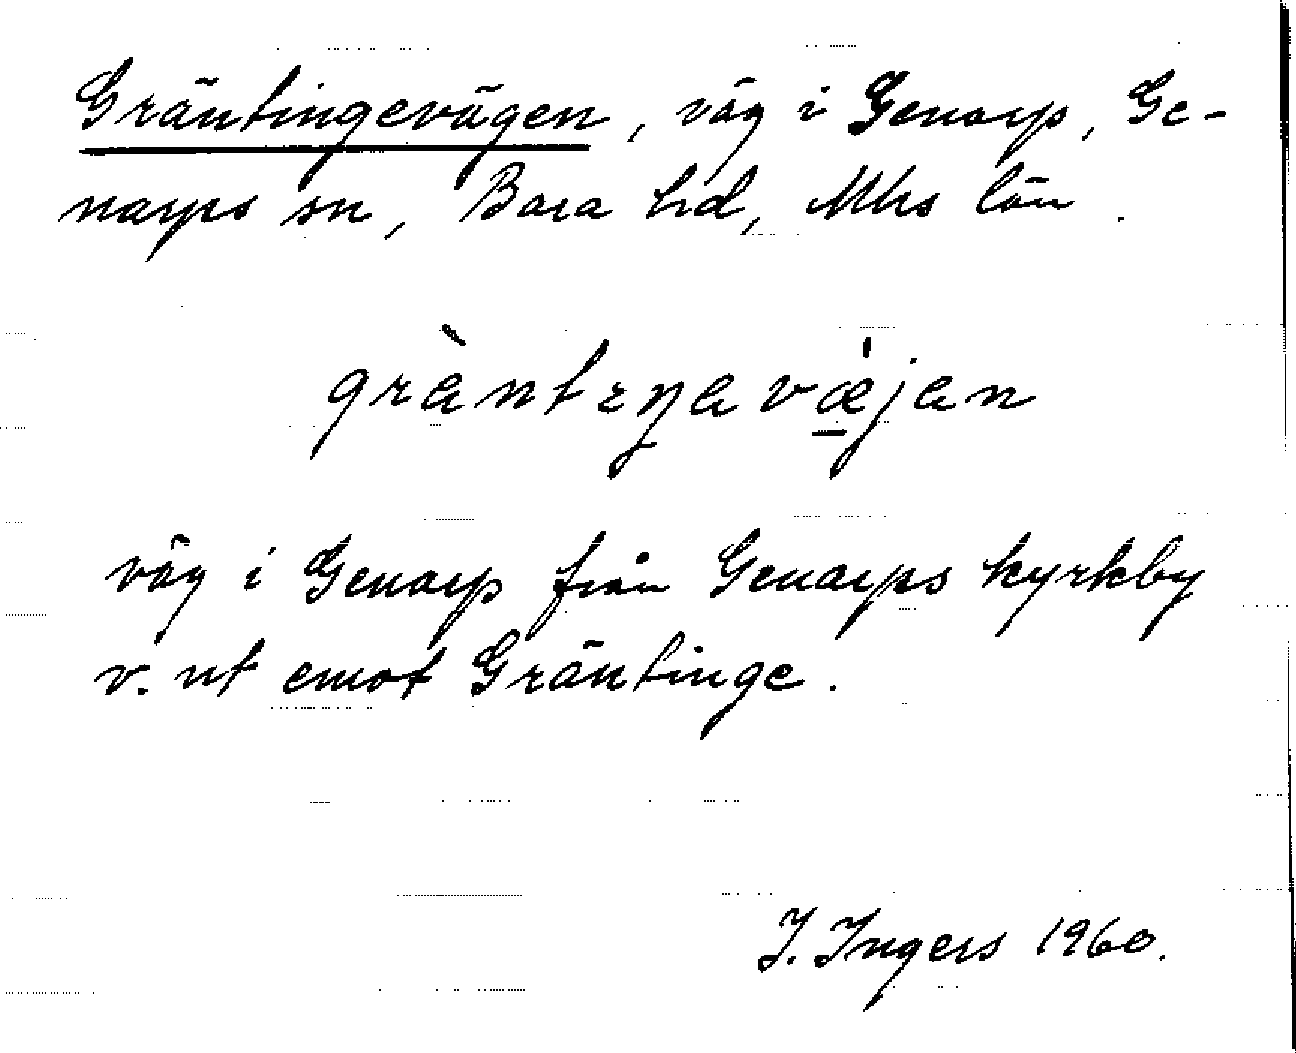 Gräntingevägen, väg i Genarp, Ge-
narps sn, Bara hd, Mhs län.
gràntɪŋa væ̠̍jan
väg i Genarp från Genarps kyrkby
v. ut emot Gräntinge.
I. Ingers 1960.